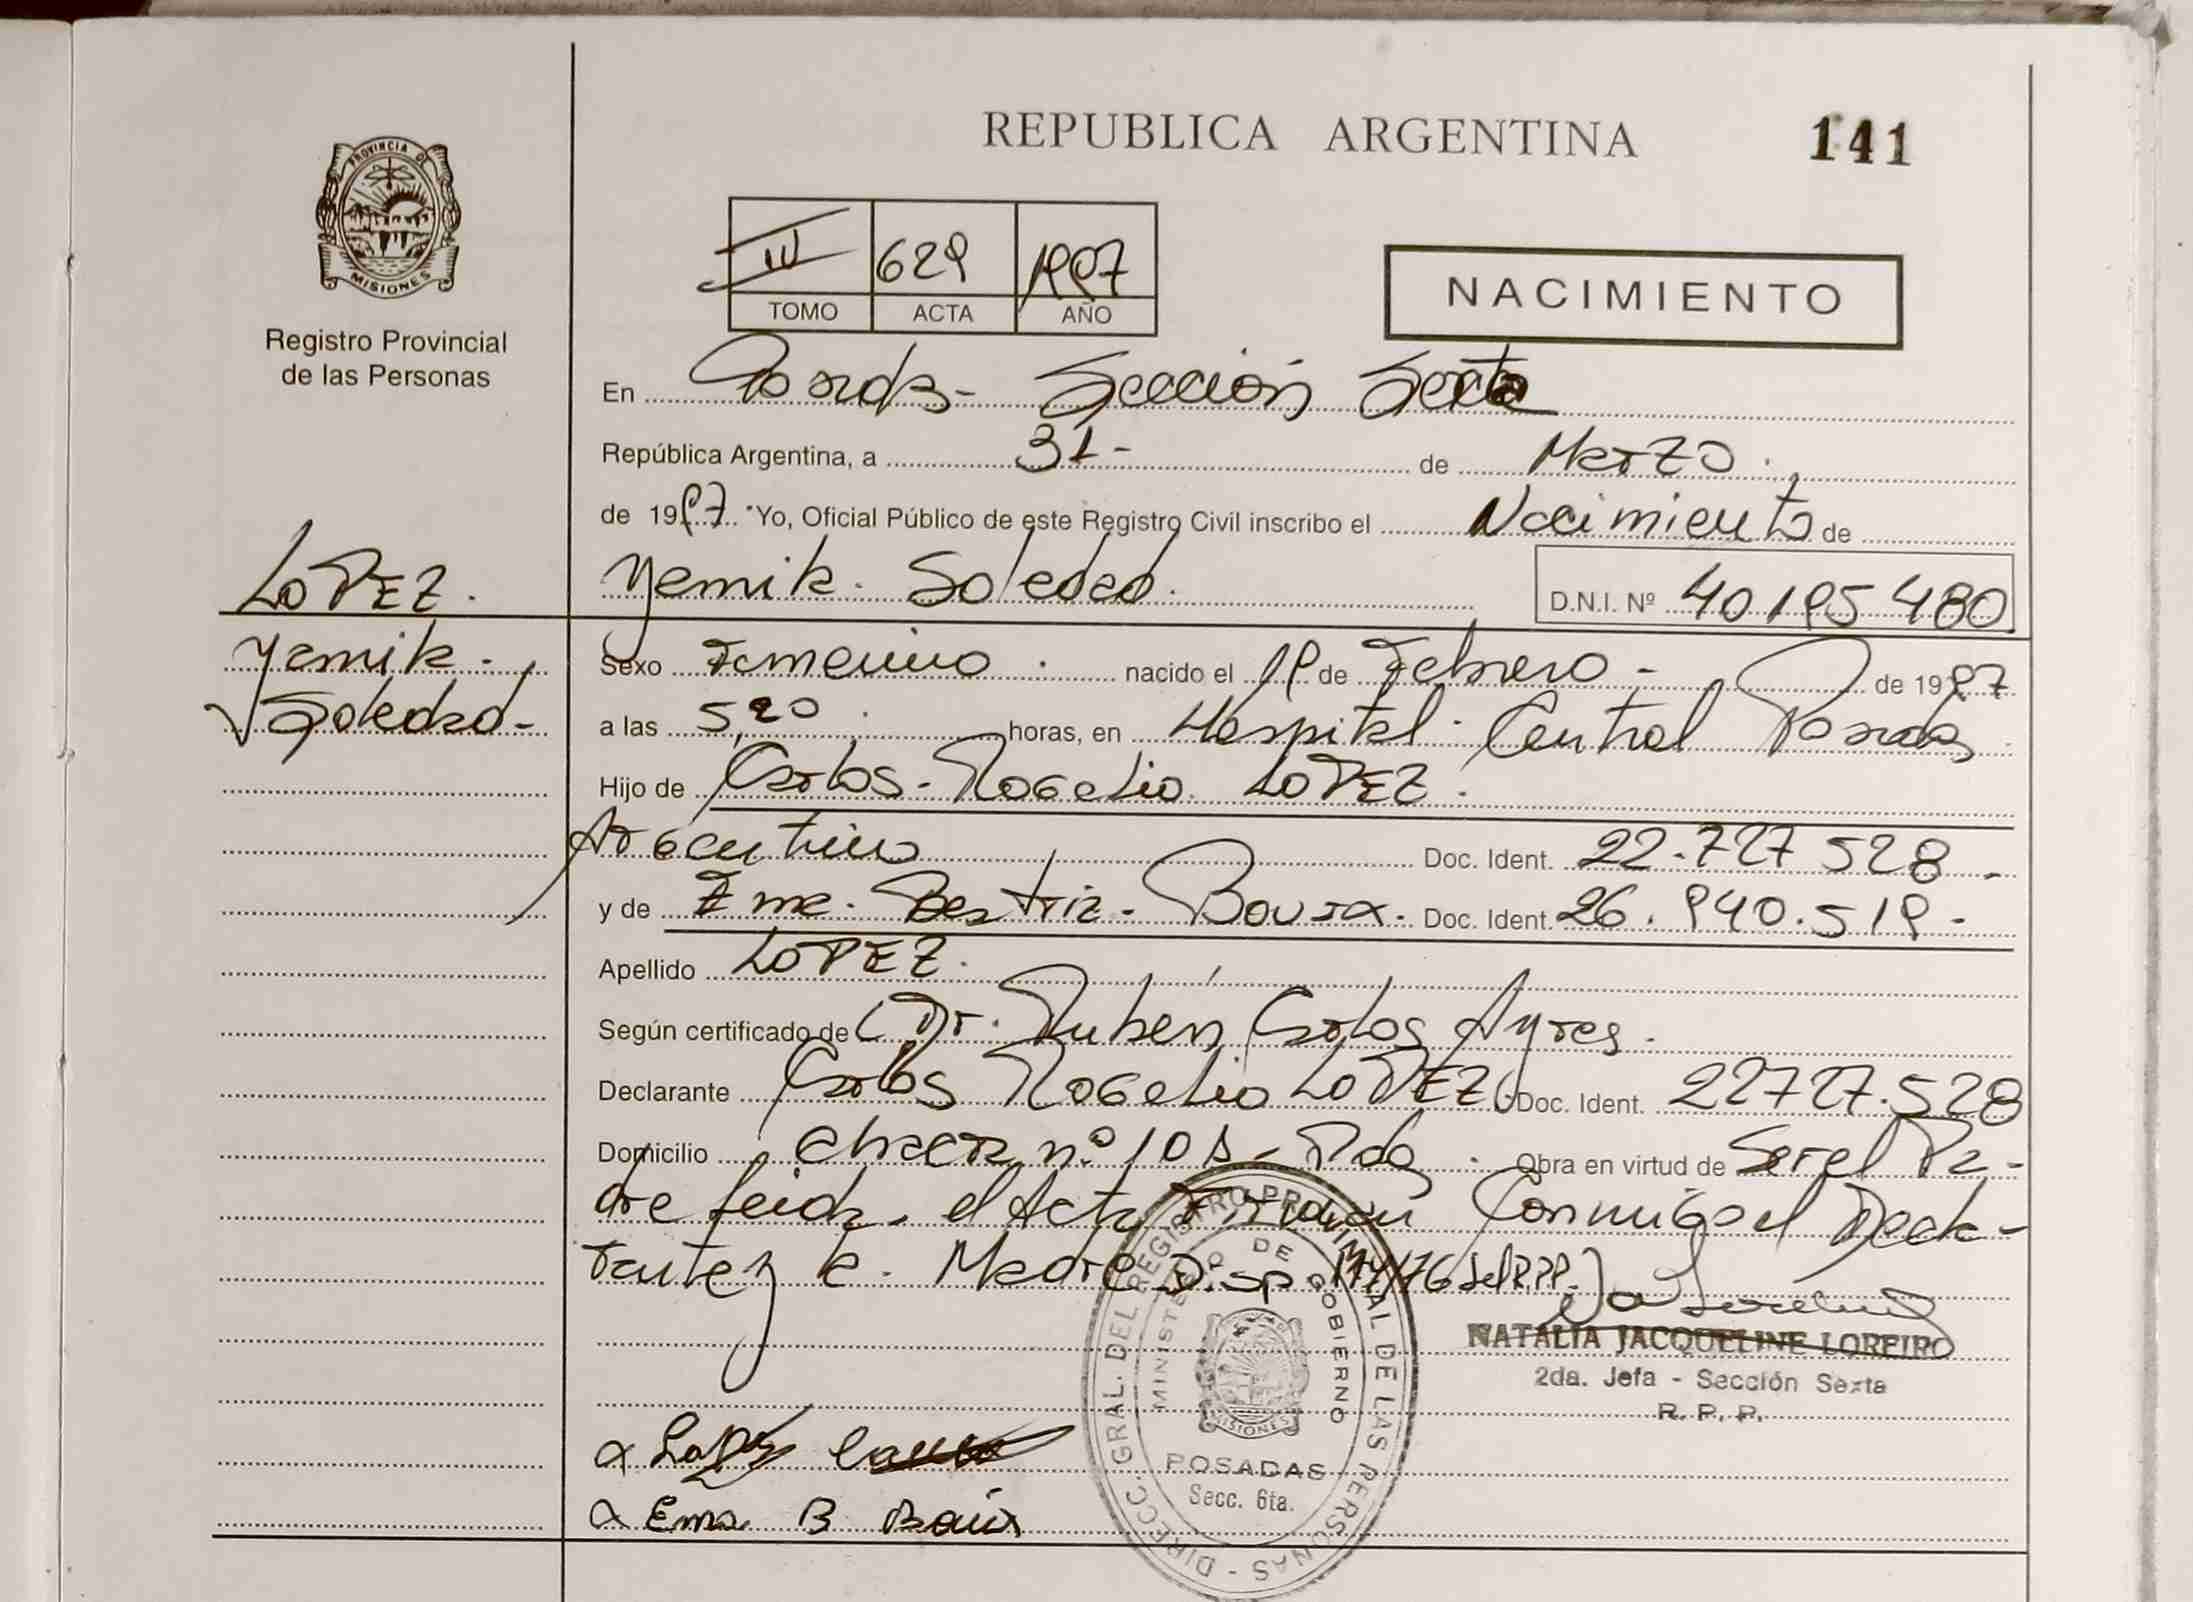 PROVINCIA DE
MISIONES
Registro Provincial
de las Personas
REPUBLICA ARGENTINA
141
III 629 1997
TOMO ACTA AÑO
NACIMIENTO
En Posadas - Sección Sexta
República Argentina, a 31- de Marzo.
de 1997. Yo, Oficial Público de este Registro Civil inscribo el Nacimiento de
LOPEZ. Yamila. Soledad. D.N.I. Nº 40195480
Yamila. Soledad-
Sexo Femenino. nacido el 19 de Febrero - de 1997
a las 5,20 horas, en Hospital Central Posadas
Hijo de Carlos - Rogelio LOPEZ.
Argentino Doc. Ident. 22.727528-
y de Ema. Beatriz - Doc. Ident. 26.940.519-
Apellido LOPEZ.
Según certificado de Dr. Ruben Carlos Ayres.
Declarante Carlos Rogelio LOPEZ Doc. Ident. 22727.528
Domicilio chacra nº 101 - Pdas. Obra en virtud de Ser el Pa-
dre Leida el Acta Firman Conmigo el Decla-
rante y la Madre Disp 174/76 del R.P.P.
NATALIA JACQUELINE LOREIRO
2da. Jefa - Sección Sexta
R. P. P.
DIRECC. GRAL. DEL REGISTRO PROVINCIAL DE LAS PERSONAS
MINISTERIO DE GOBIERNO
MISIONES
POSADAS
Secc. 6ta.
Lopez
Ema B